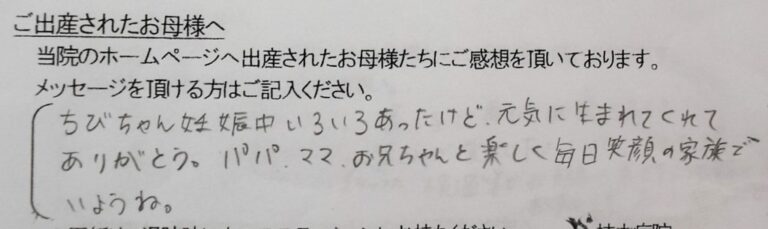 ご出産されたお母様へ
当院のホームページへ出産されたお母様たちにご感想を頂いております。
メッセージを頂ける方はご記入ください。
ちびちゃん妊娠中いろいろあったけど、元気に生まれてくれて
ありがとう。パパ、ママ、お兄ちゃんと楽しく毎日笑顔の家族で
いようね。